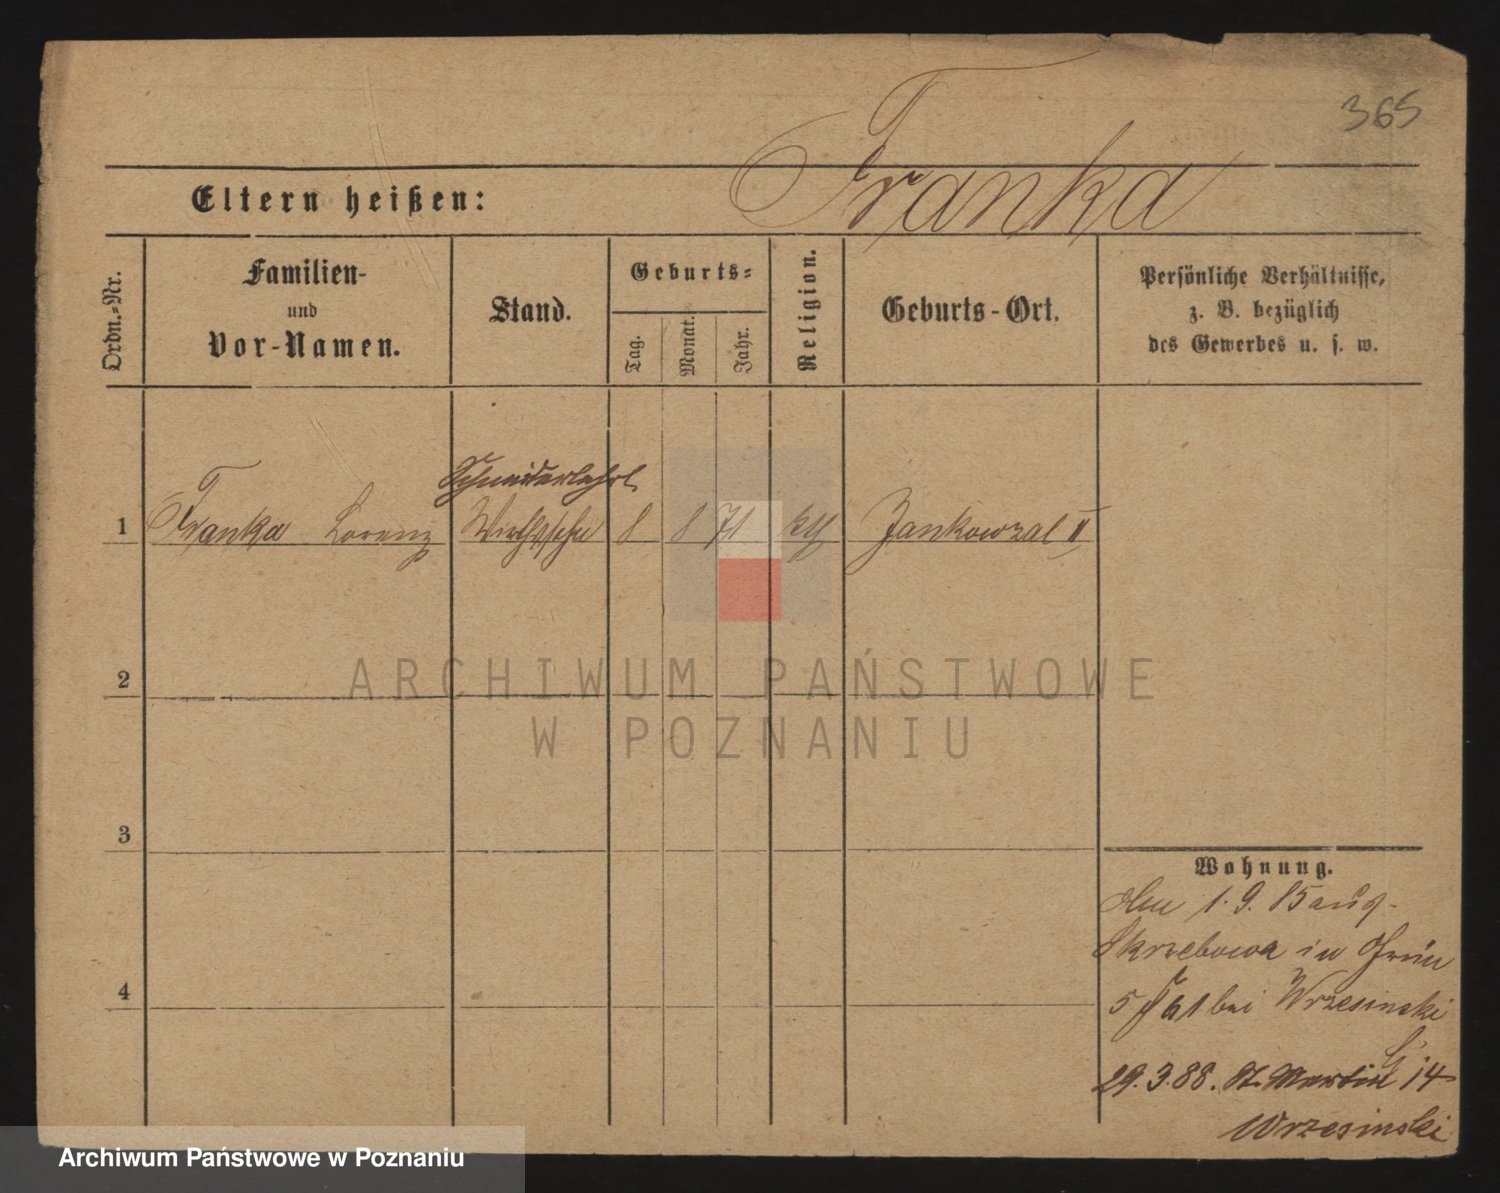 365
Franka
Eltern heißen:
Ordn.-Nr.
Familien-
und
Vor-Namen.
Stand.
Geburts-
Tag.
Monat.
Jahr.
Religion.
Geburts-Ort.
Persönliche Verhältnisse,
z. B. bezüglich
des Gewerbes u. s. w.
Schneiderlehrl.
1 Franka Lorenz Wirthssohn 8 8 71 kth Jankowzal II
2
ARCHIWUM PAŃSTWOWE
W POZNANIU
3
Wohnung.
1. 9. 85 aus
Skrzebowa in
4
5 bei Wrzesinski
29.3.88. St. Martin 14
Wrzesinski
Archiwum Państwowe w Poznaniu